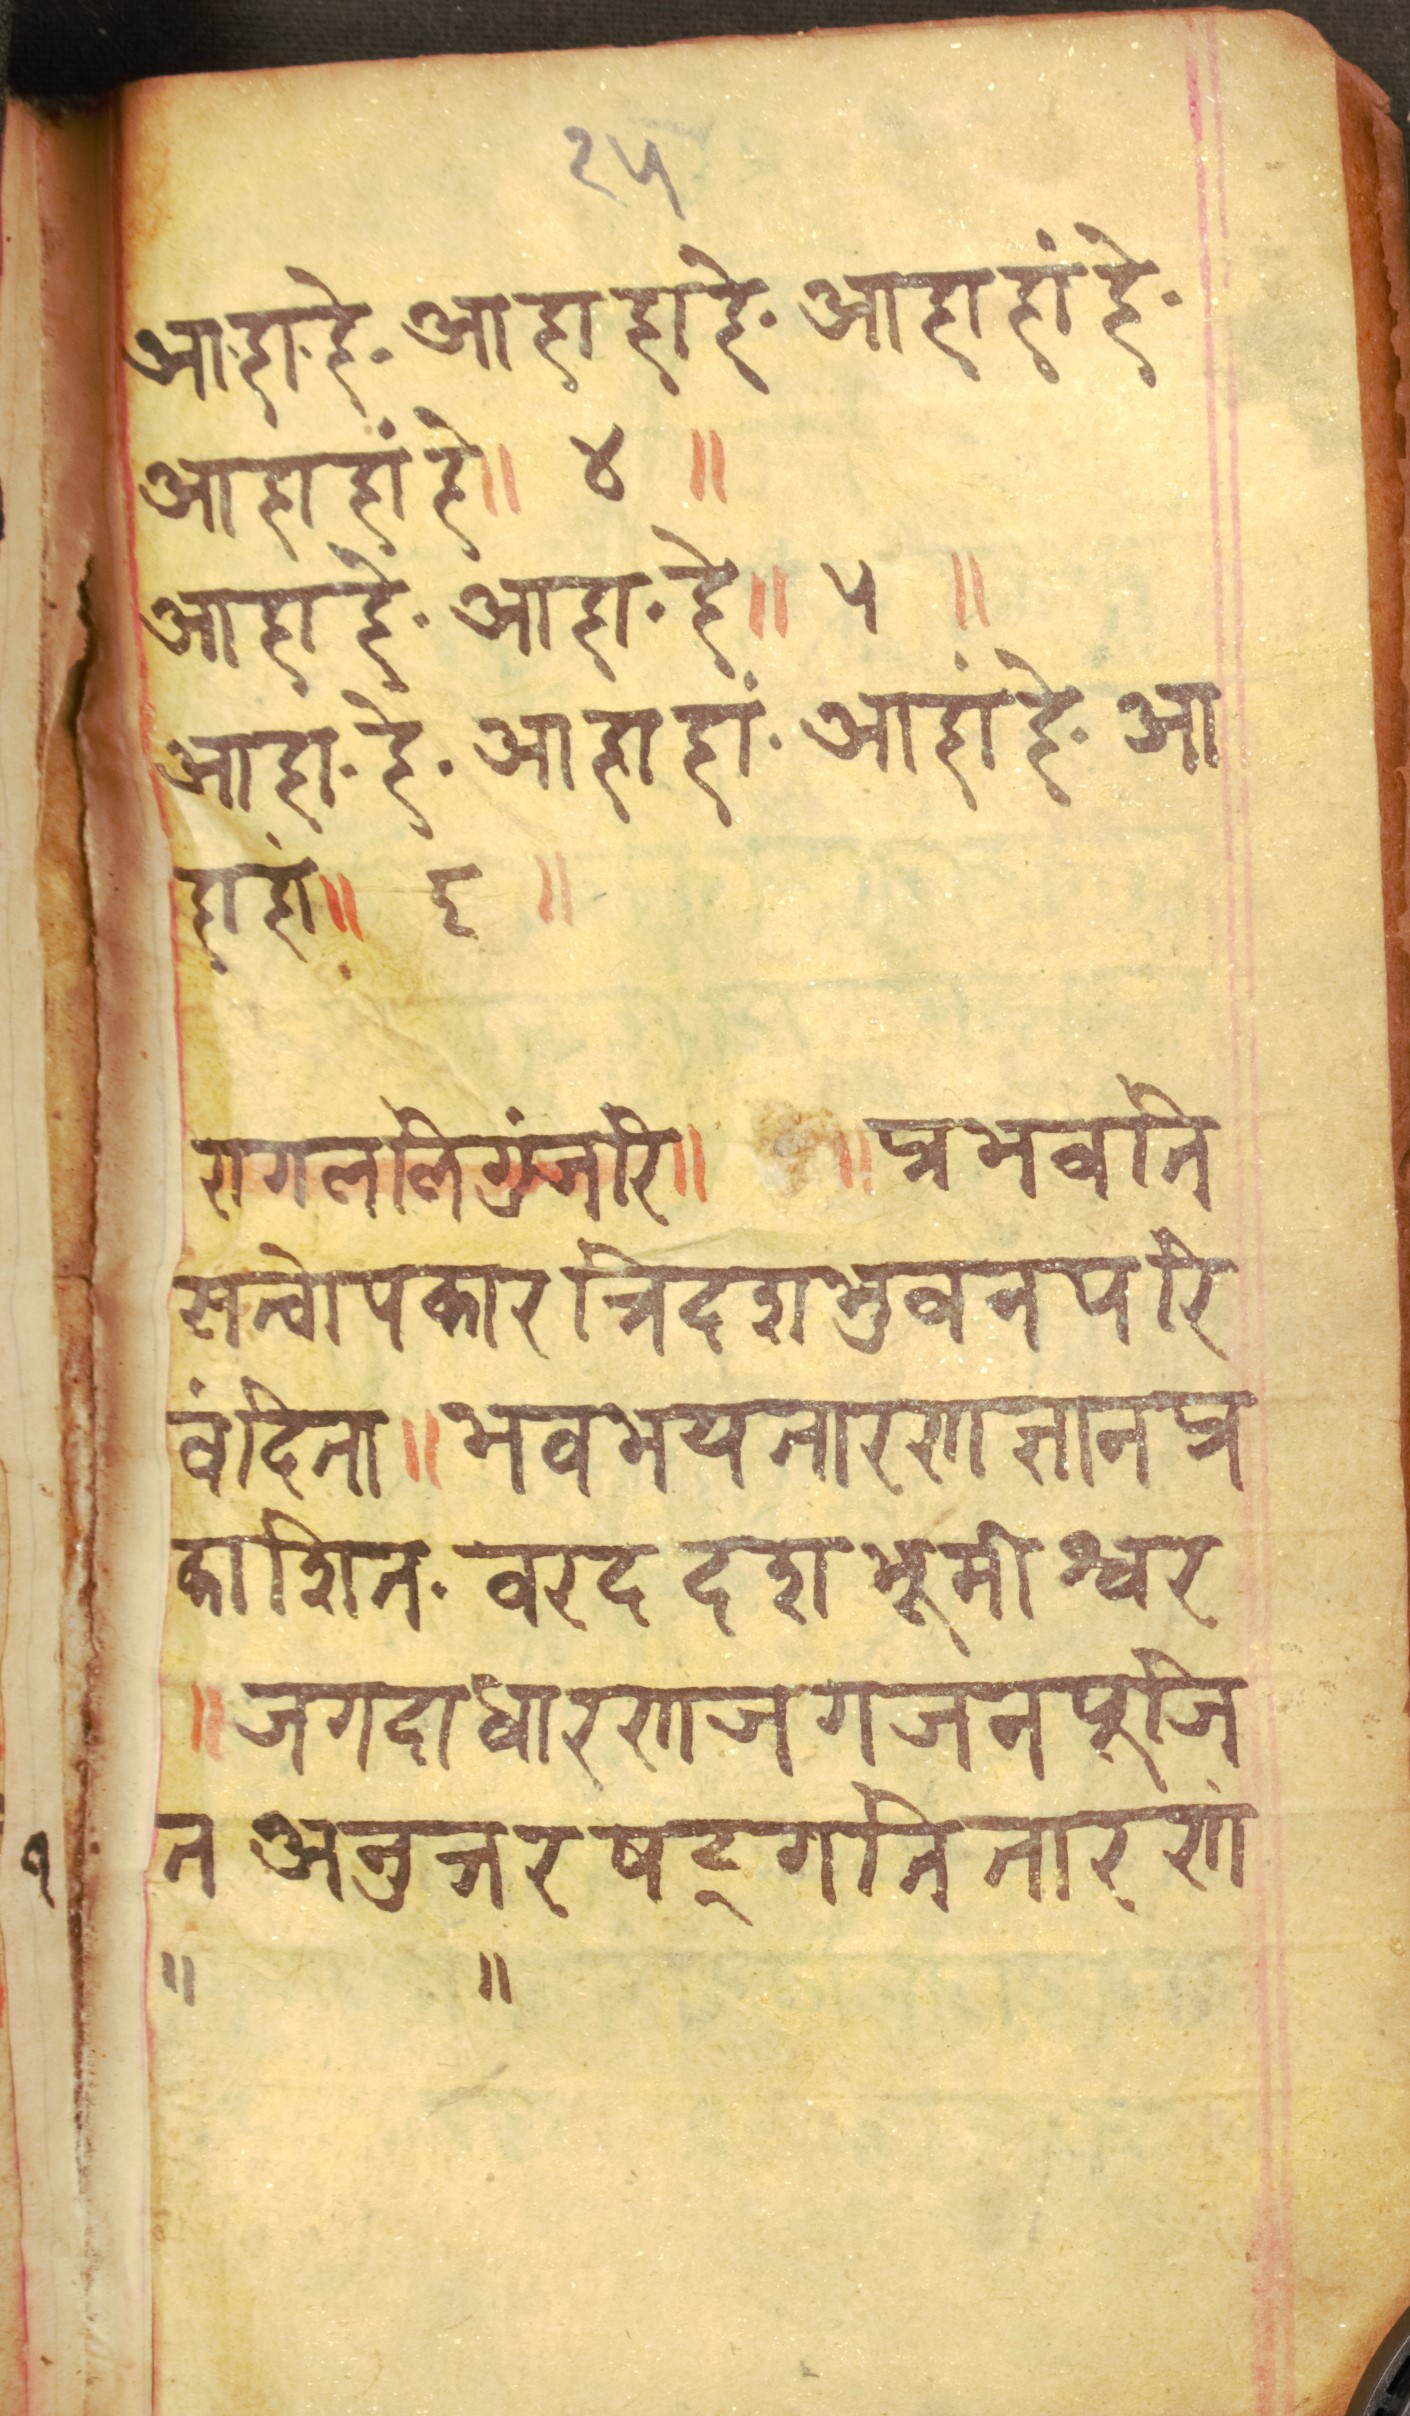 २५
आहा·हे· आहाहाहे· आहाहांहे·
आहाहांहे॥ ४ ॥
आहाहे· आहा·हे॥ ५ ॥
आहा·हे· आहाहां· आहांहे· आ
हाहां॥ ६ ॥
रागललितगुंजरि॥ ॥प्रभवति
सत्वोपकार त्रिदशभुवनपरि
वंदिता॥भवभयतारणज्ञानप्र
काशित· वरददशभूमीश्वर
॥जगदाधारणजगजनपूजि
त अनुत्तरषट्गतितारणं
॥ ॥
१